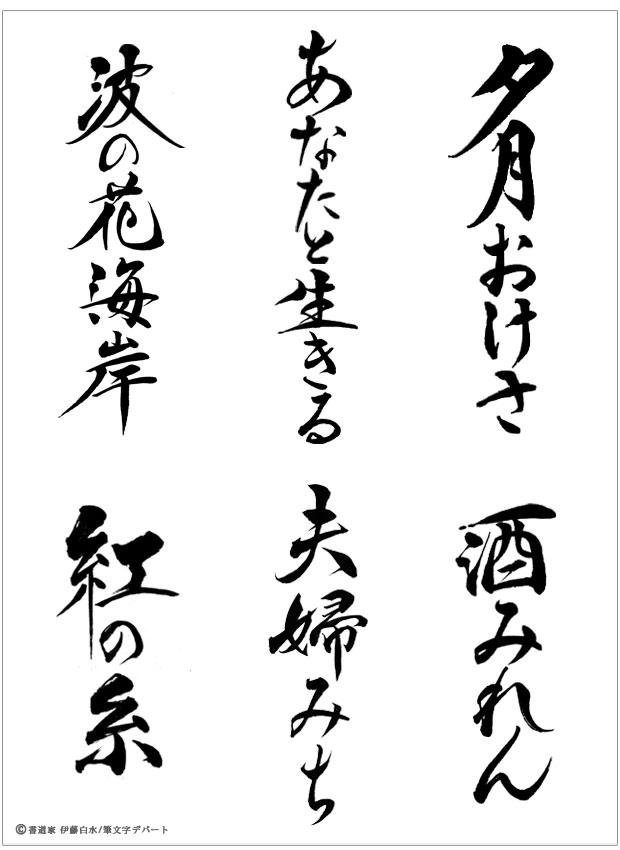 夕月おけさ
あなたと生きる
波の花海岸
酒みれん
夫婦みち
紅の糸
©書道家 伊藤白水/筆文字デパート